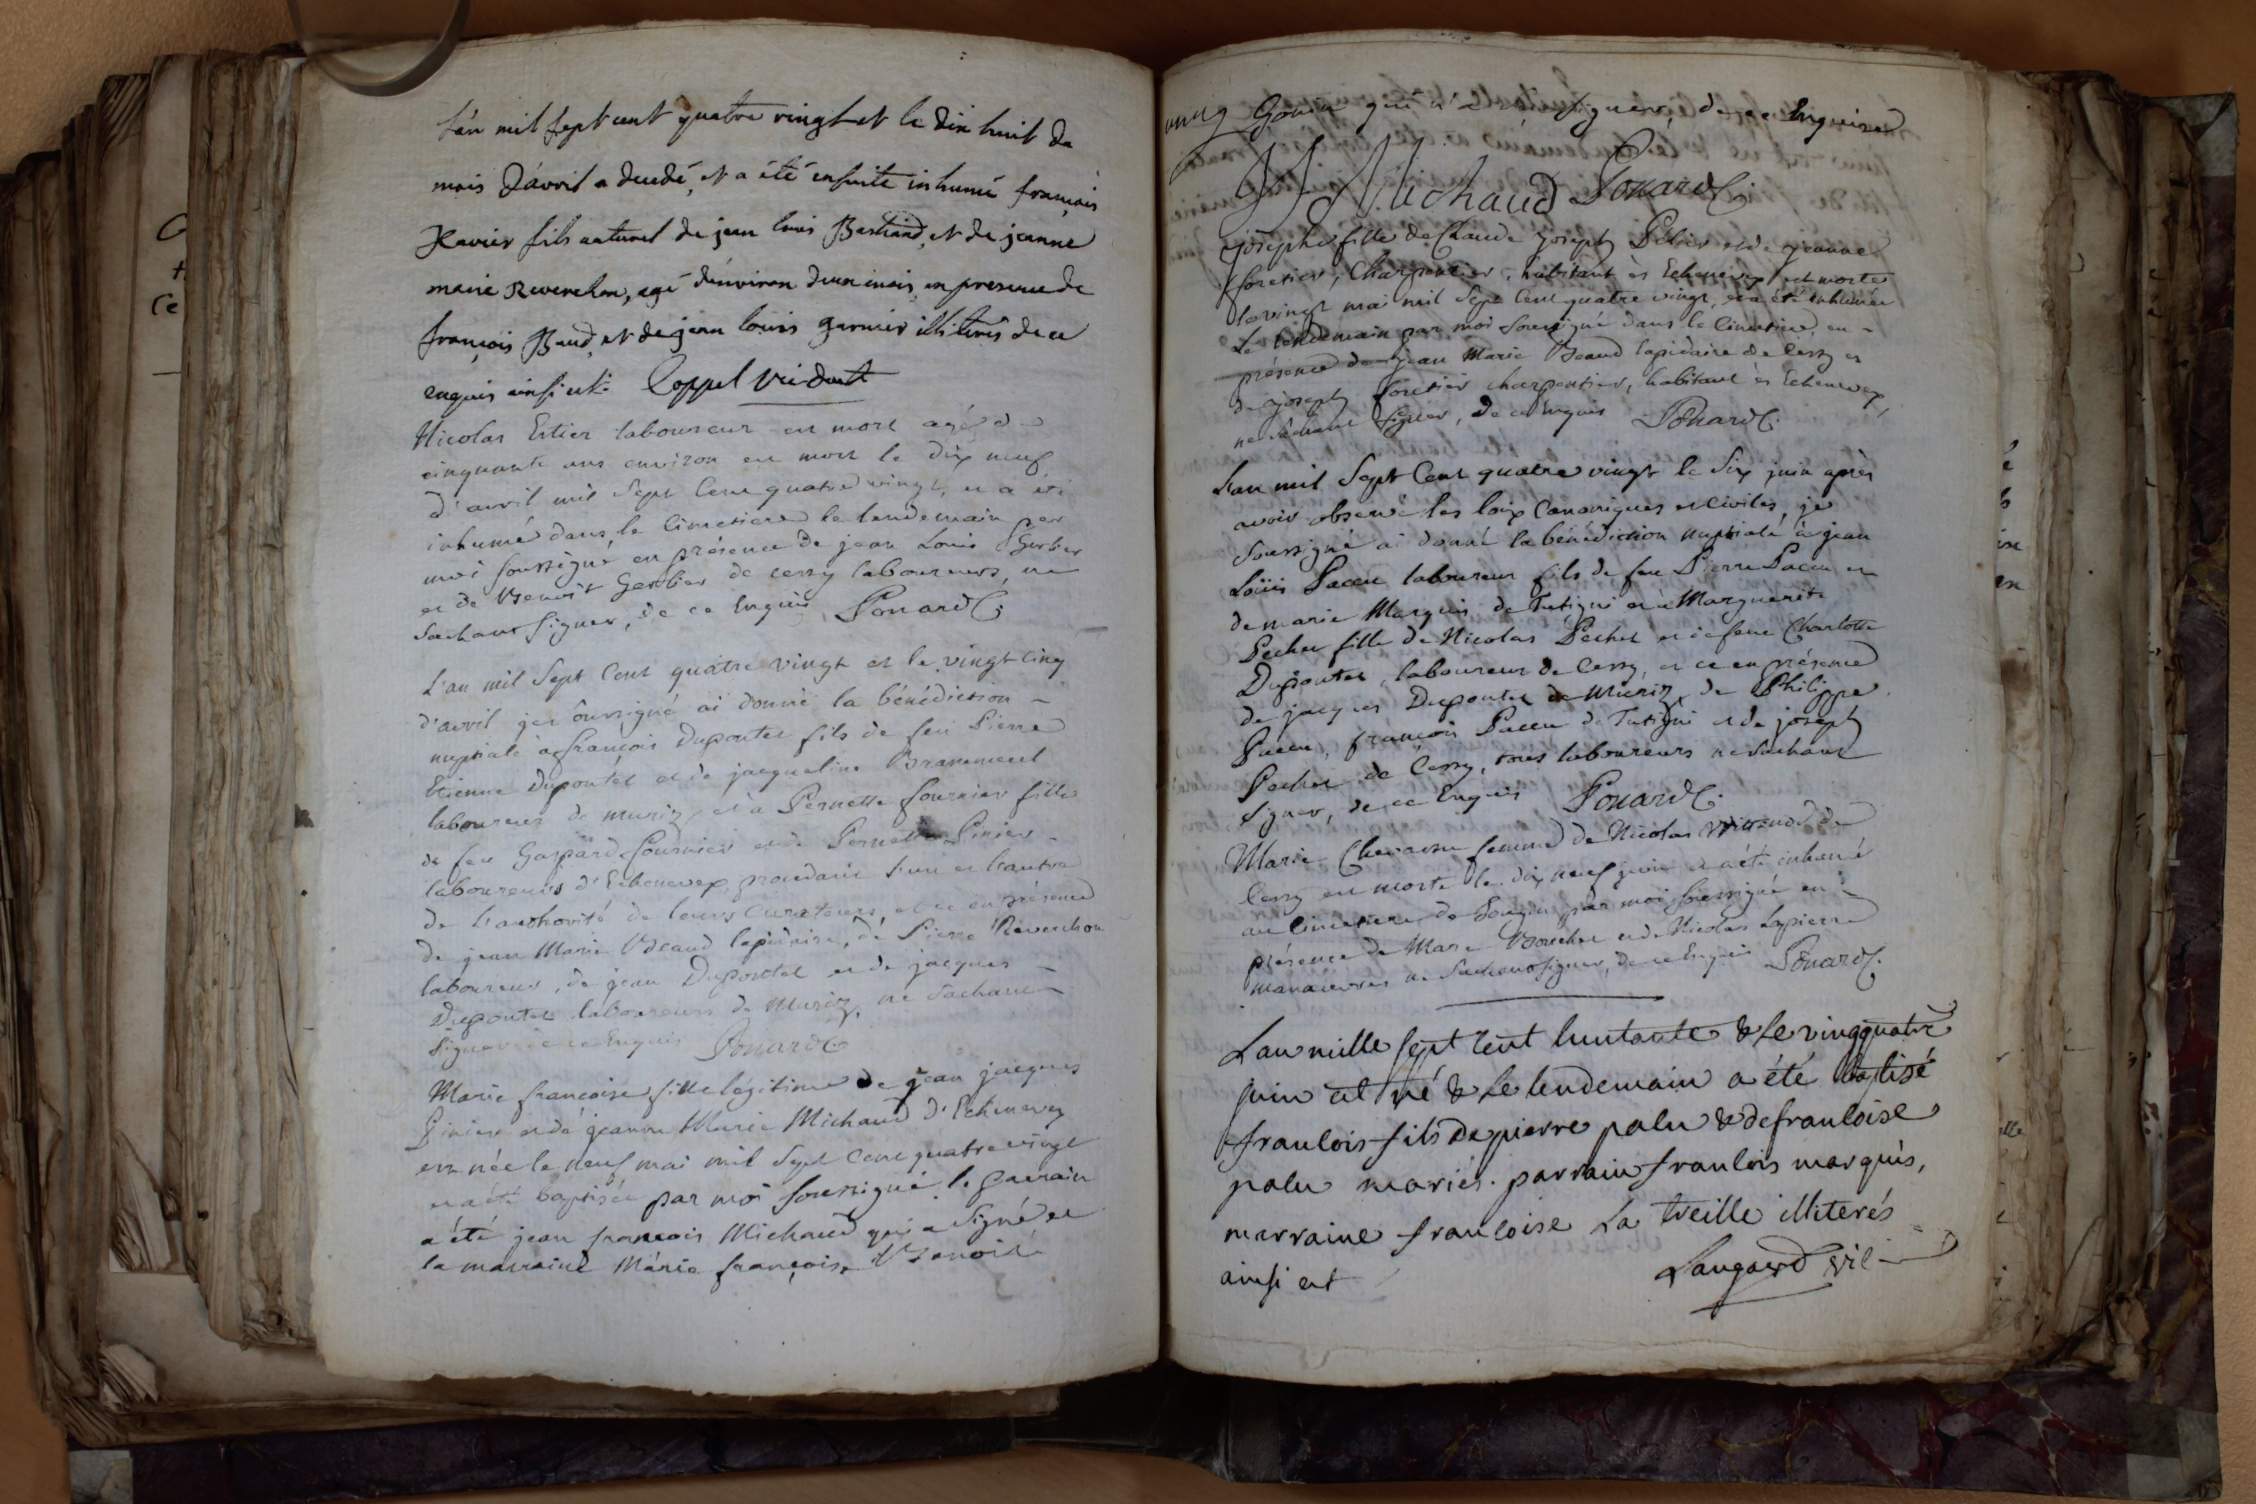 L'an mil sept cent quatre vingt et le dix huit du
mois d'avril a decedé, et a été ensuite inhumé françois
Xavier fils naturel de jean louis Bastiand, et de jeanne
marie Reverchon, agé d'environ deux mois, en presence de
françois Baud, et de jean louis garnier illiterés de ce
enquis ainsi est. Coppel
Nicolas Estier laboureur est mort agé de
cinquante ans environ est mort le dix neuf
d'avril mil Sept Cent quatre vingt, et a été
inhumé dans le Cimetiere le lendemain par
moi soussigné en présence de jean Louis Gerbier
et de Benoit Gerbier de cessy laboureurs, ne
Sachant signer, de ce Enquis Ponard C.
L'an mil Sept Cent quatre vingt et le vingt cinq
d'avril je soussigné ai donné la bénédiction
nuptiale à françois Dupontet fils de feu Pierre
Etienne Dupontet et de jacqueline
laboureur de muriz, et à Pernette fournier fille
de feu Gaspard fournier et de Pernette Pinier
laboureurs d'Echenevex, procedant l'un et l'autre
de l'authorité de leurs Curateurs, et ce en présence
de jean Marie Beaud lapidaire, de Pierre Reverchon
laboureur, de jean Dupontet et de jacques
Dupontet laboureurs de Muriz, ne Sachant
Signer de ce Enquis Ponard C.
Marie françoise fille légitime de jean jacques
Piniere et de jeanne Marie Michaud d'Echenevex
est née le neuf mai mil Sept Cent quatre vingt
et a été baptisée par moi soussigné. le parrain
a été jean francois Michaud qui a Signé et
la marraine Marie françoise Benoit
Gonin qui n'a signer, de ce Enquise
Michaud Ponard C.
josephe fille de Claude joseph et de jeanne
foretier, Charpentier, habitant ès Echenevex est morte
le vingt mai mil Sept Cent quatre vingt, et a été inhumée
Le lendemain par moi soussigné dans le Cimetiere, en
présence de jean Marie Beaud lapidaire de Cessy et
de joseph foretier charpentier, habitant ès Echenevex,
ne Sachant Signer, de ce Enquis Ponard C.
L'an mil Sept Cent quatre vingt le Six juin après
avoir observé les loix Canoniques et Civiles, je
Soussigné ai donné la bénédiction nuptiale à jean
Loüis Pacu laboureur fils de feu Pierre Pacu et
de marie Marquis de Tutigni et à Marguerite
Pecher fille de Nicolas Pecher et de feue Charlotte
Dupontet, laboureur de Cessy, et ce en présence
de jacques Dupontet de Muriz, de Philippe
Pacu, françois Pacu de Tutigni et de joseph
Pecher de Cessy, tous laboureurs ne Sachant
Signer, de ce Enquis Ponard C.
Marie femme de Nicolas de
Cessy est morte le dix neuf juin et a été inhumé
au Cimetiere de par moi soussigné en
présence de Marc Bouchet et de Nicolas Lapierre
manœuvres ne Sachant signer, de ce Enquis Ponard C.
L'an mille sept cent huitante & le vingt quatre
juin est né & le lendemain a été baptisé
francois fils de pierre palu & de francoise
palu mariés. parrain francois marquis,
marraine francoise La treille illiterés
ainsi est Laugard vic